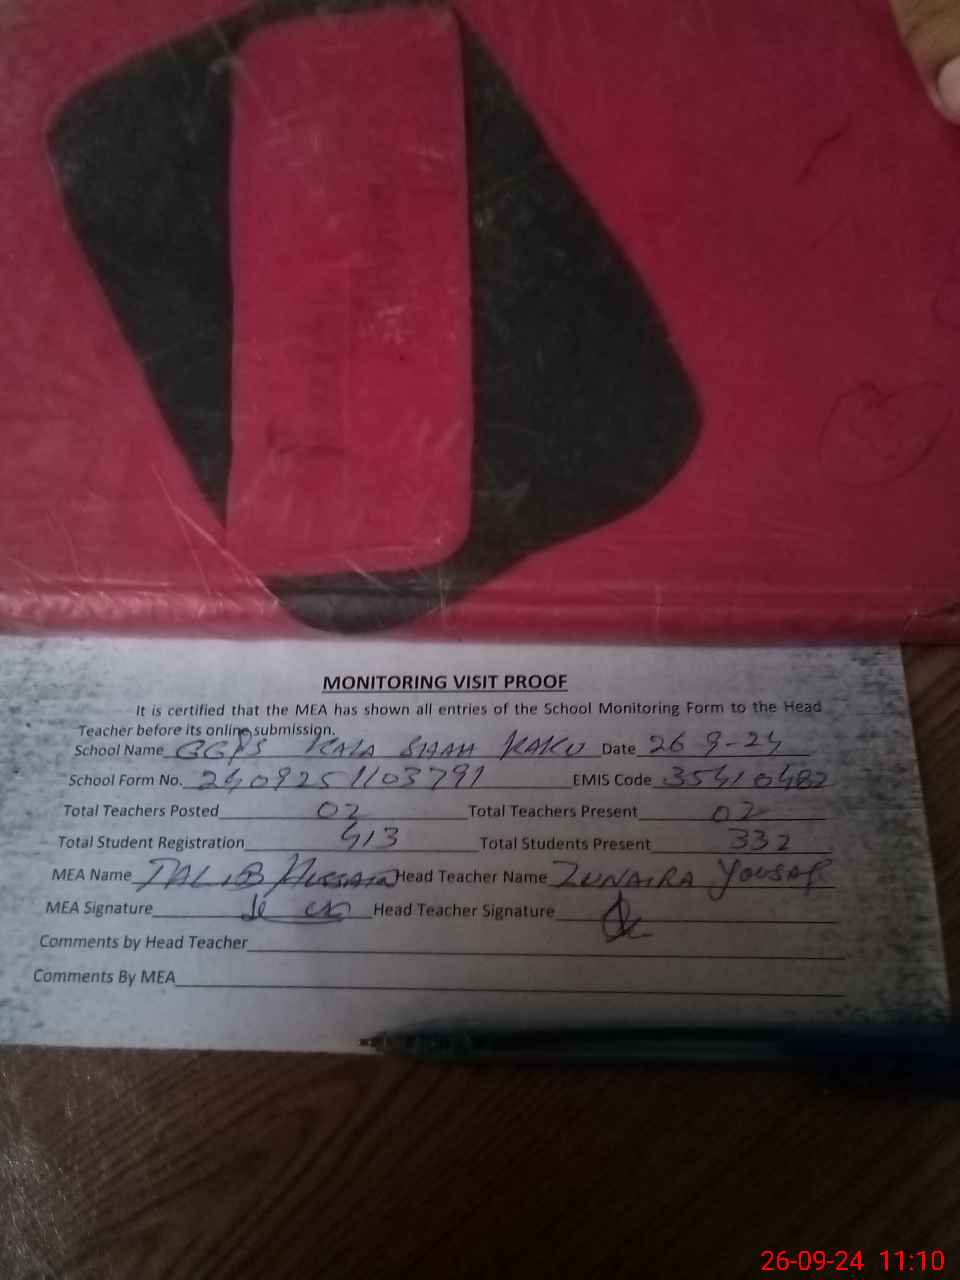 MONITORING VISIT PROOF
It is certified that the MEA has shown all entries of the School Monitoring Form to the Head
Teacher before its online submission.
School Name GGPS KALA SHAH KAKU Date 26 9-24
School Form No. 2409251103791 EMIS Code 35410482
Total Teachers Posted 02 Total Teachers Present 02
Total Student Registration 413 Total Students Present 332
MEA Name TALIB HUSSAIN Head Teacher Name ZUNAIRA YOUSAF
MEA Signature Head Teacher Signature
Comments by Head Teacher
Comments By MEA
26-09-24 11:10